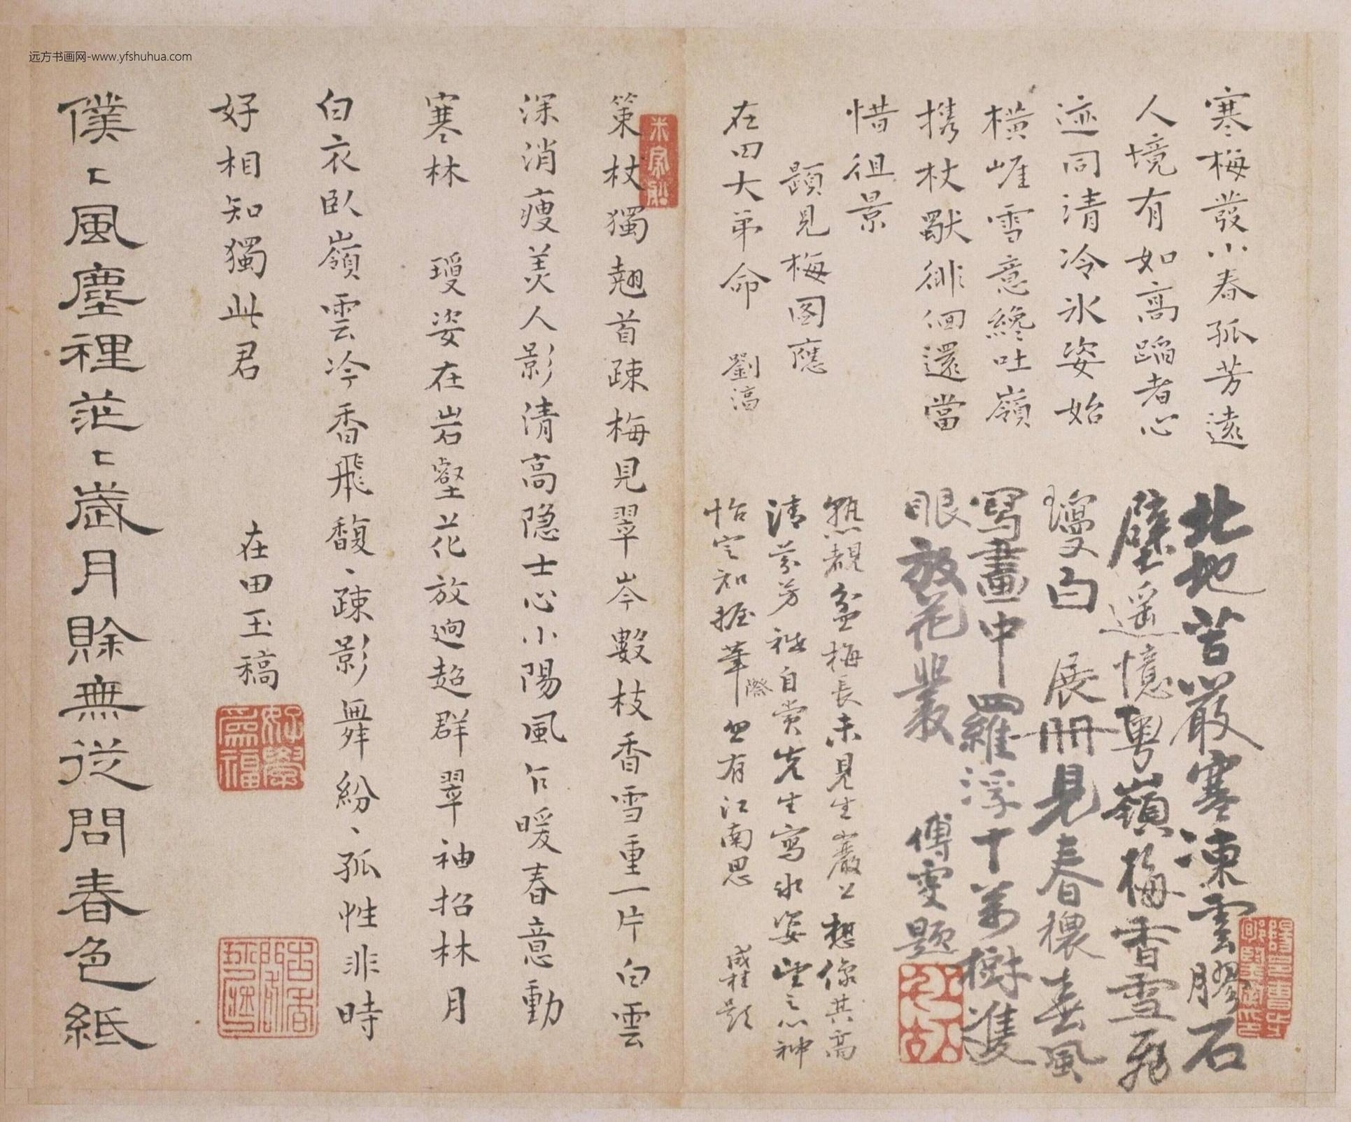 远方书画网-www.yfshuhua.com
寒梅發小春孤芳遠
人境有如高蹈者心
迹同清冷氷姿始
橫崕雪意纔吐嶺
携杖獸徘徊還當
惜徂景
題見梅图應
在田大弟命 劉滈
北地苦嚴寒凍雲膠石
壁遥憶粤嶺梅香雪飛
瓊白 展冊見春穠春風
寫畫中羅浮十萬樹隻
眼放花叢 傅雯題
熟覩盆梅長未見生巖上想像其高
清芬芳 自賞先生寫氷姿望之心神
怡定知握筆際 有江南思 題
米家船
策杖獨翹首疎梅見翠岑數枝香雪重一片白雲
深消瘦美人影清高隐士心小陽風乍暖春意動
寒林 瓊姿在岩壑花放逈超群翠袖招林月
白衣臥嶺雲冷香飛馥〻疎影舞紛〻孤性非時
好相知獨此君
在田玉稿
好學為福
僕〻風塵裡茫〻歲月賒無從問春色紙